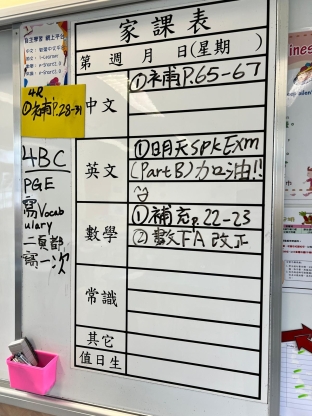 家課表
第 週 月 日(星期 )
中文
①補P.65-67
英文
①明天SpkExm
(PartB)加油!!
數學
①補充P.22-23
(2)數FA改正
常識
其它
值日生
4R
①補P.28-31
4BC
PGE
寫Vocab
ulary
二頁都
寫一次